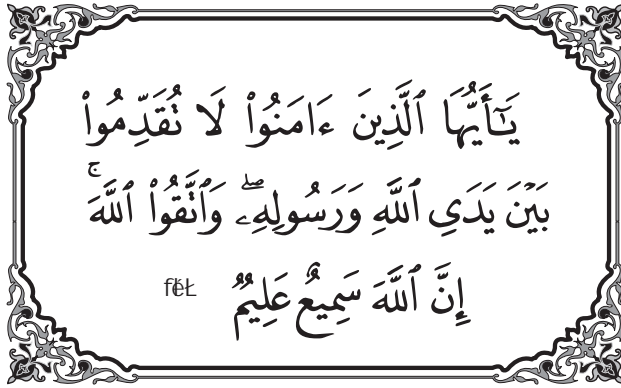 يَٰٓأَيُّهَا ٱلَّذِينَ ءَامَنُوا۟ لَا تُقَدِّمُوا۟
بَيْنَ يَدَىِ ٱللَّهِ وَرَسُولِهِۦۖ وَٱتَّقُوا۟ ٱللَّهَۚ
إِنَّ ٱللَّهَ سَمِيعٌ عَلِيمٌ